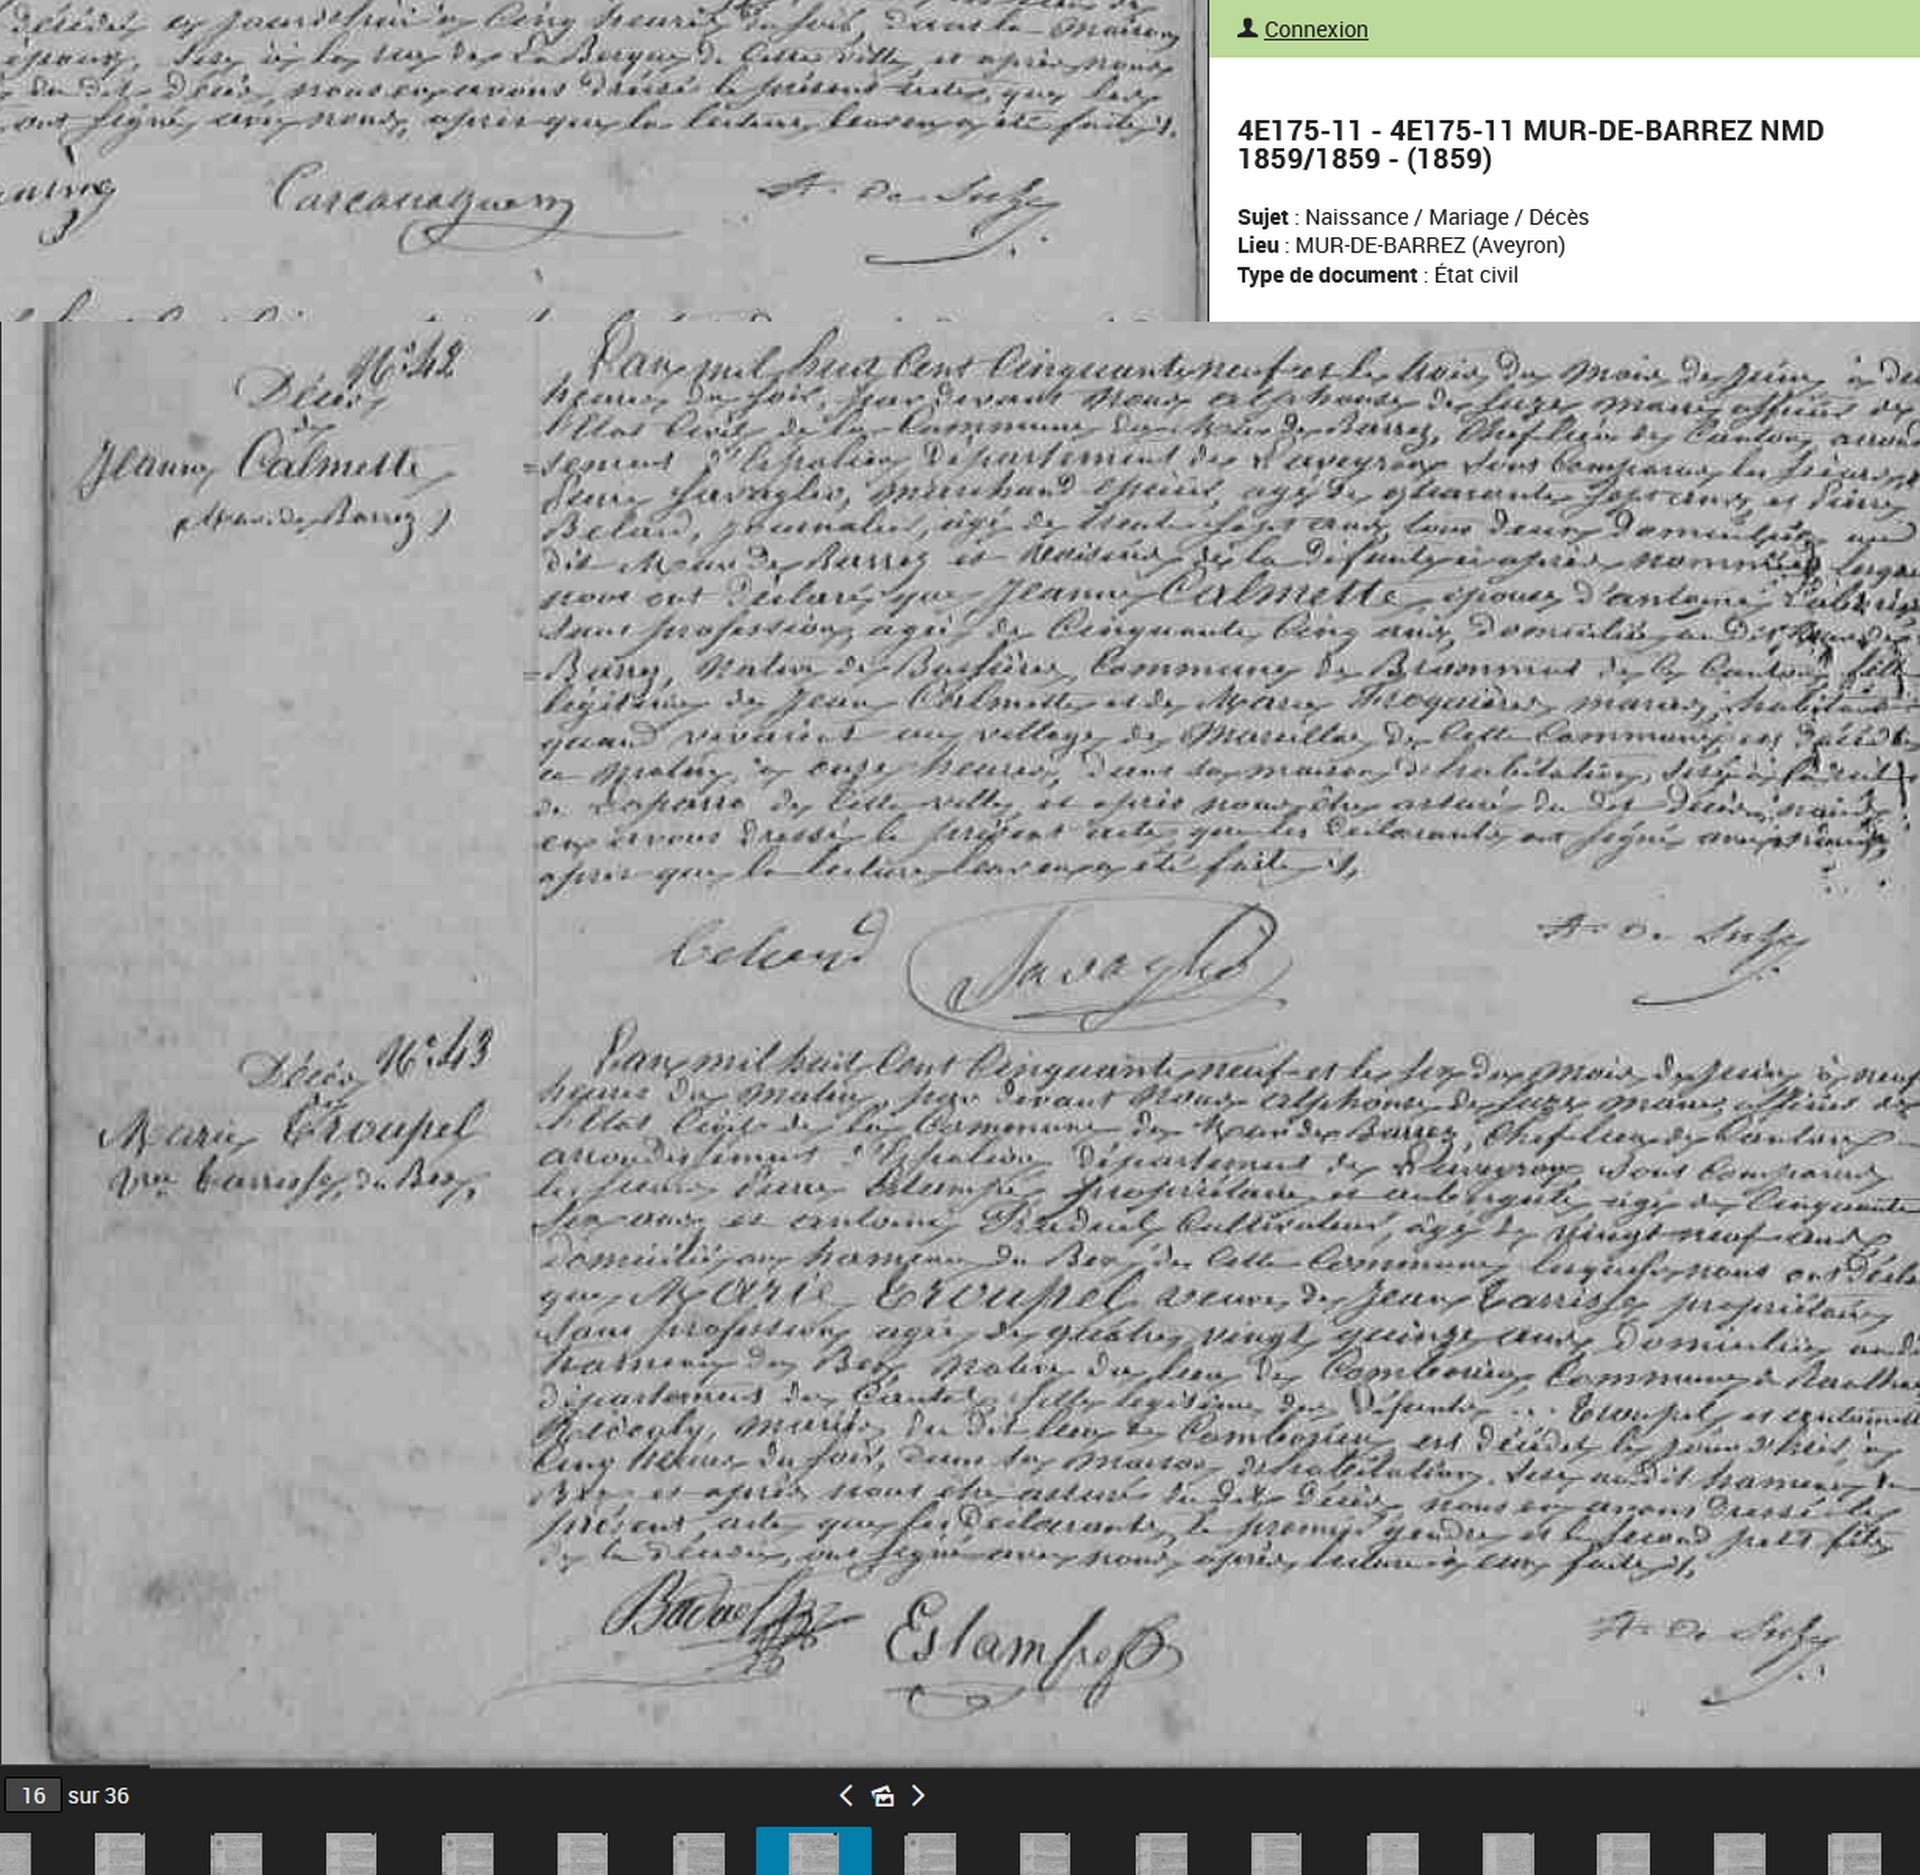 décédé aujourd'hui à cinq heures du soir, dans la maison
époux, sise à la rue de La Berque de cette ville, et après nous
du dit décès, nous en avons dressé le présent acte, que les
ont signé avec nous, après que la lecture leur en a été faite.
Carcanaguen
A. De Suze
Connexion
4E175-11 - 4E175-11 MUR-DE-BARREZ NMD
1859/1859 - (1859)
Sujet : Naissance / Mariage / Décès
Lieu : MUR-DE-BARREZ (Aveyron)
Type de document : État civil
N° 42
Décès
de
Jeanne Calmette
(Mur-de-Barrez)
L'an mil huit cent cinquante neuf et le trois du mois de juin, à
heures du soir, par devant nous Alphonse de Suze maire officier de
l'Etat Civil de la Commune du Mur de Barrez, Chef-lieu de Canton, arrondis
=sement d'Espalion, département de l'aveyron, sont comparus les sieurs
Pierre Savaglio, marchand épicier, agé de quarante sept ans, et Pierre
Belard, journalier, agé de trente sept ans, tous deux domiciliés au
dit Mur de Barrez et voisins de la défunte ci après nommée, lesquels
nous ont déclaré que Jeanne Calmette, épouse d'antoine
sans profession, agée de cinquante cinq ans, domiciliée au dit Mur de
=Barrez, native de Bussières, Commune de Brommat de ce Canton, fille
légitime de Jean Calmette et de Marie Froquières, mariés, habitans
quand vivaient au village de Marsillac de cette commune, est décédée
ce matin, à onze heures, dans sa maison d'habitation, sise à la rue
de Laparro de cette ville, et après nous être assuré du dit décès, nous
en avons dressé le présent acte, que les déclarants ont signé avec nous,
après que la lecture leur en a été faite.
Belard
Savaglio
A. De Suze
N° 43
Décès
de
Marie Troupel
Vve Carrisse, du Bex.
L'an mil huit cent cinquante neuf et le six du mois de juin, à neuf
heures du matin, par devant nous Alphonse de Suze maire, officier de
l'Etat Civil de la Commune du Mur de Barrez, Chef-lieu de Canton,
arrondissement d'Espalion, département de l'aveyron, sont comparus
les sieurs Pierre Estampe, propriétaire et aubergiste, agé de cinquante
six ans et antoine cultivateur, âgé de vingt neuf ans,
domiciliés au hameau du Bex, de cette commune, lesquels nous ont décla
que Marie Troupel, veuve de Jean Carrisse, propriétaire
sans profession, agée de quatre vingt quinze ans, domiciliée audit
hameau du Bex, native du lieu de Comborieu, Commune de Raulhac
département du Cantal, fille légitime des défunts ... Troupel, et
mariés, du dit lieu de Comborieu, est décédée le jour d'hier, à
cinq heures du soir, dans sa maison d'habitation, sise audit hameau du
Bex, et après nous être assuré du dit décès, nous en avons dressé le
présent acte que les déclarants, le premier gendre et le second petit fils
de la décédée, ont signé avec nous, après lecture à eux faite.
Estampe
A. De Suze
16 sur 36